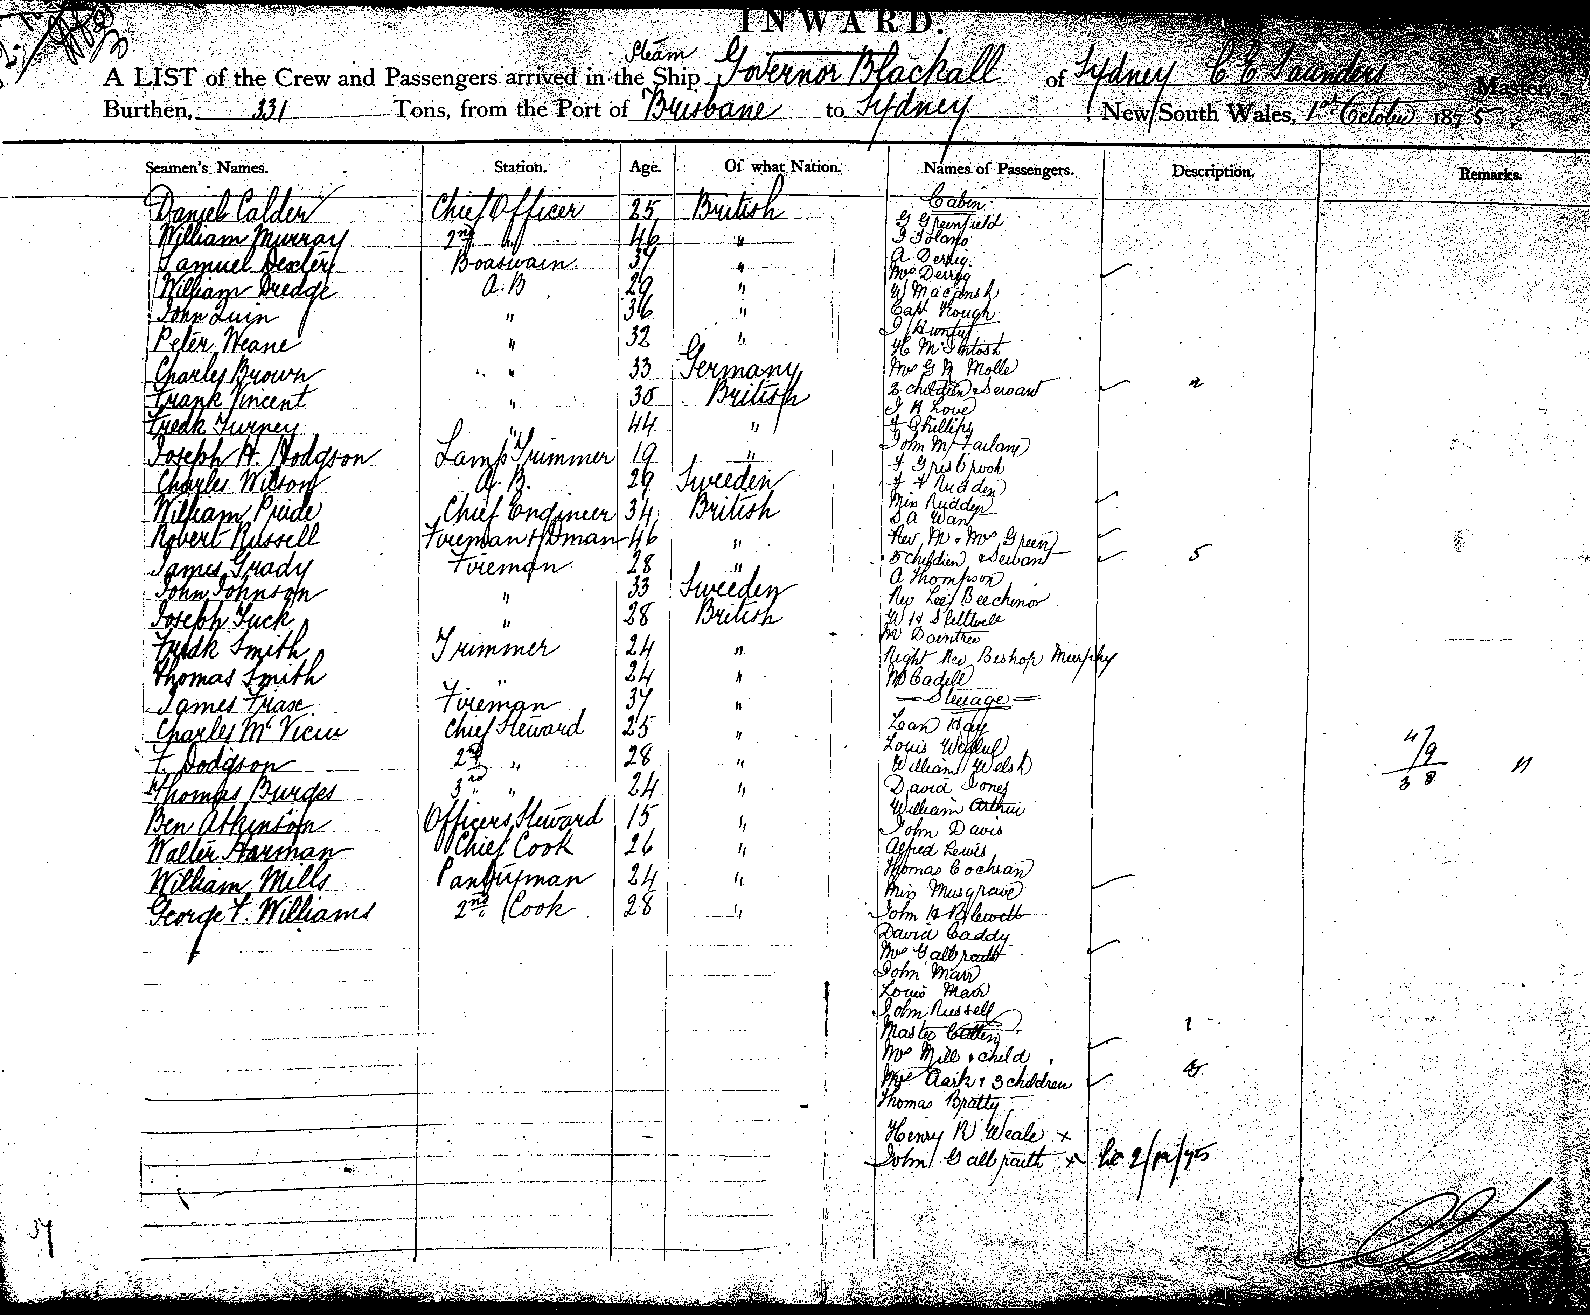 INWARD.
Steam
A LIST of the Crew and Passengers arrived in the Ship Governor Blackall of Sydney C E Saunders Master,
Burthen, 331 Tons, from the Port of Brisbane to Sydney New South Wales, 1st October 1875
Seamen's Names. Station. Age. Of what Nation. Names of Passengers. Description. Remarks.
Daniel Calder Chief Officer 25 British
William Murray 2nd " 46 "
Samuel Dexter Boaswain 37 "
William Dredge A.B 29 "
John Quin " 36 "
Peter Weane " 32 "
Charles Brown " 33 Germany
Frank Vincent " 30 British
Fredk Turney " 44 "
Joseph H. Hodgson Lamp Trimmer 19 "
Charles Wilson A.B. 29 Sweeden
William Pride Chief Engineer 34 British
Robert Russell Fireman & Dman 46 "
James Grady Fireman 28 "
John Johnson " 33 Sweeden
Joseph Tuck " 28 British
Fredk Smith Trimmer 24 "
Thomas Smith " 24 "
James Frase Fireman 37 "
Charles McVicin Chief Steward 25 "
F. Dodgson 2nd " 28 "
Thomas Burges 3rd " 24 "
Ben Atkinson Officers Steward 15 "
Walter Harman Chief Cook 26 "
William Mills Pantryman 24 "
George F. Williams 2nd Cook 28 "
Cabin
G Greenfield
J Toland
A Derrig
Mrs Derrig
W Macansh
Capt Hough
J
H McIntosh
Mrs G N Molle
2 children & Servant 2
J R Love
J Phillips
John McFarlane
F Gresbrook
F F Rudden
Miss Rudden
S A Wan
Rev Mr & Mrs Green
5 children & Servant 5
A Thompson
Rev Lee Beechinor
W H
Mr Daintree
Right Rev Bishop Murphy
Mr Cadell
Steerage
Lean Hay
Louis
William Welsh
David Jones
William Arthur
John Davis
Alfred Lewis
Thomas Cochran
Miss Musgrave
John H Blewett
David Caddy
Mrs Galbraith
John Marr
Louis Marr
John Russell
Master 1
Mrs Mill & child
Mrs Aask & 3 children
Thomas Bratty
Henry R Weale x
John Galbraith x 2/10/75
47
9
38
37